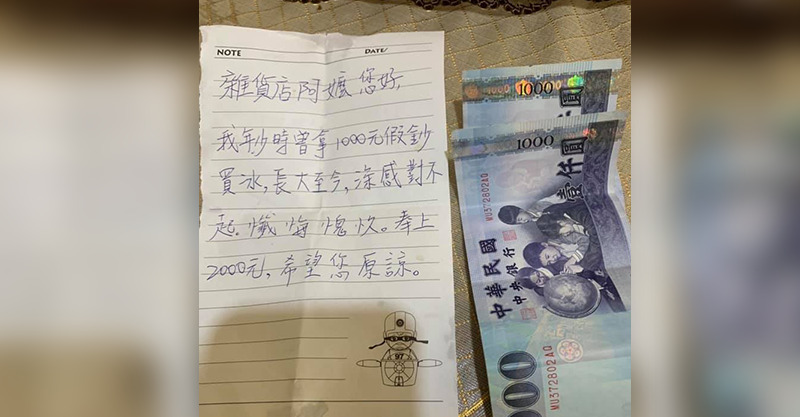 NOTE DATE/
雜貨店阿嬤您好,
我年少時曾拿1000元假鈔
買冰,長大至今,深感對不
起.懺悔愧疚。奉上
2000元,希望您原諒。
97
1000 1000
1000
壹仟圓
MU372802AQ
中華民國
中央銀行
000
MU372802AQ